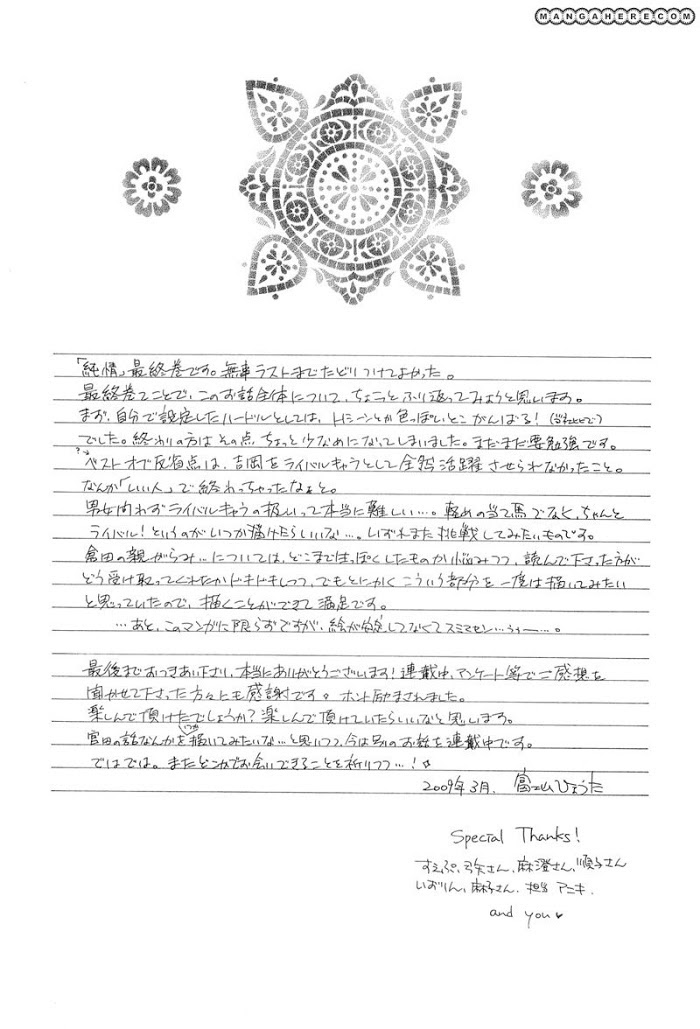 MANGAHERE.COM
「純情」最終巻です。無事ラストまでたどりつけてよかった。
最終巻てことで、このお話全体について、ちょこっとふり返ってみようと思います。
まず、自分で設定したハードルとしては、Hシーンとか色っぽいとこがんばる!
でした。終わりの方はその点、ちょっと少なめになってしまいました。まだまだ要勉強です。
ベストオブ反省点は、吉岡をライバルキャラとして全然活躍させられなかったこと。
なんか「いい人」で終わっちゃったなぁと。
男女問わずライバルキャラの扱いって本当に難しい…。軽めの当て馬でなく、ちゃんと
ライバル!というのがいつか描けたらいいな…。いずれまた挑戦してみたいものです。
倉田の親がらみ…については、どこまで生っぽくしたものか悩みつつ、読んで下さった方が
どう受け取ってくれたかドキドキしつつ、でもとにかくこういう部分を一度は描いてみたい
と思っていたので、描くことができて満足です。
…あと、このマンガに限らずですが、絵が安定してなくてスミマセン…うぅー…。
最後までおつきあい下さり、本当にありがとうございます!連載中、アンケート等でご感想を
聞かせて下さった方々にも感謝です。ホント励まされました。
楽しんで頂けたでしょうか?楽しんで頂けていたらいいなと思います。
宮田の話なんかをいつか描いてみたいな…と思いつつ、今は別のお話を連載中です。
ではでは。またどこかでお会いできることを祈りつつ…!☆
2009年3月. 富士山ひょうた
Special Thanks!
すえぷ、弓矢さん、麻澄さん、順子さん
いおりん、麻子さん、担当アニキ.
and you♥